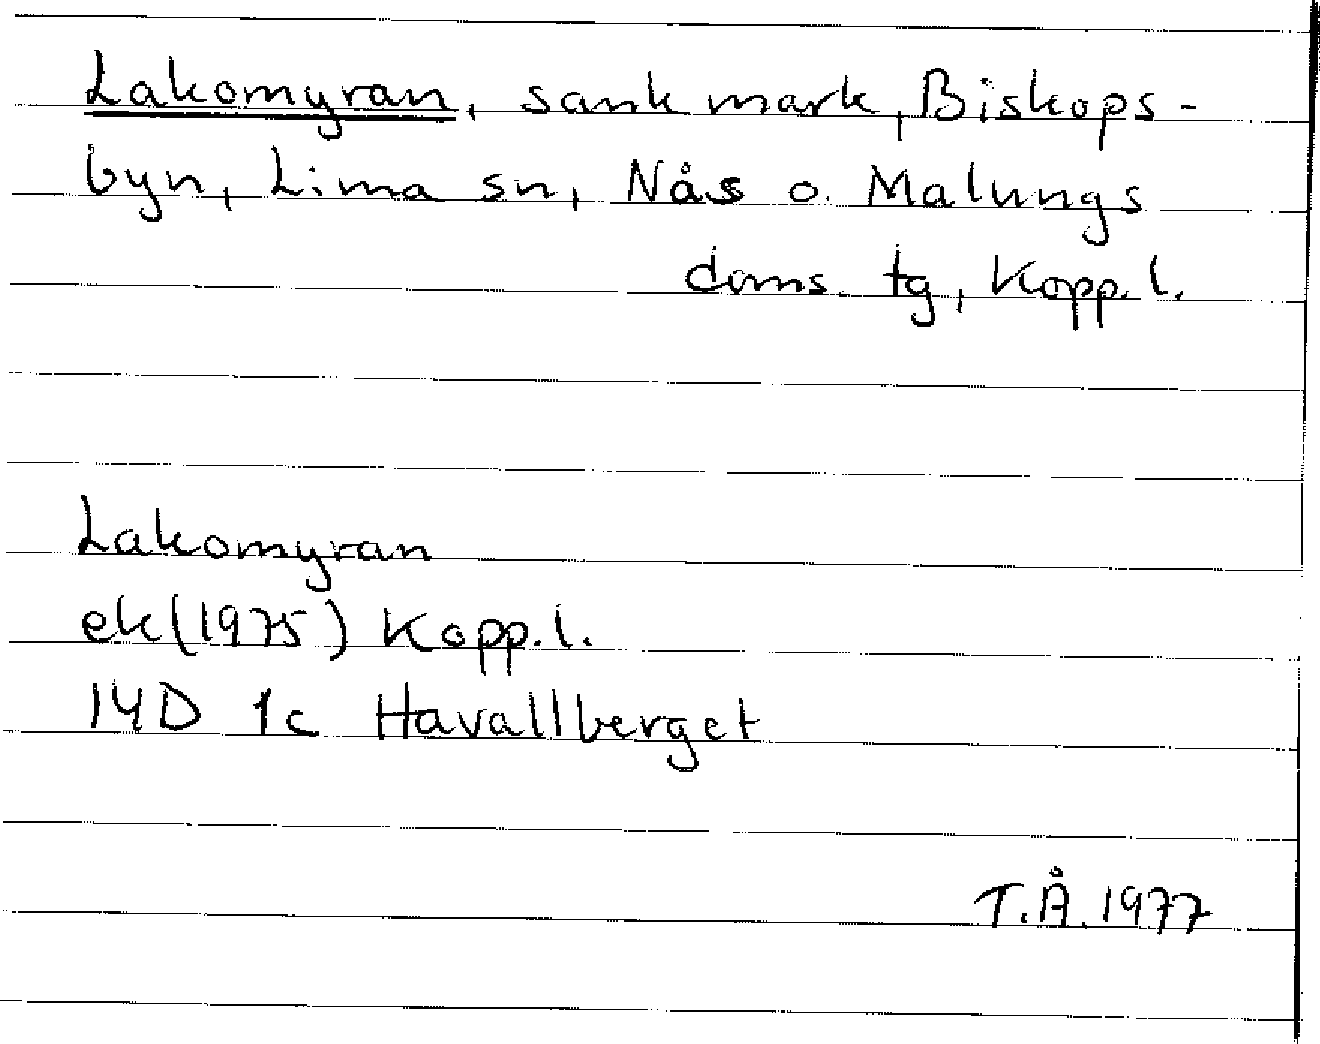 Lakomyran, sank mark, Biskops-
byn, Lima sn, Nås o. Malungs
doms. tg, Kopp. l.
Lakomyran
ek (1975) Kopp. l.
14D 1c Havallberget
T.Å. 1977